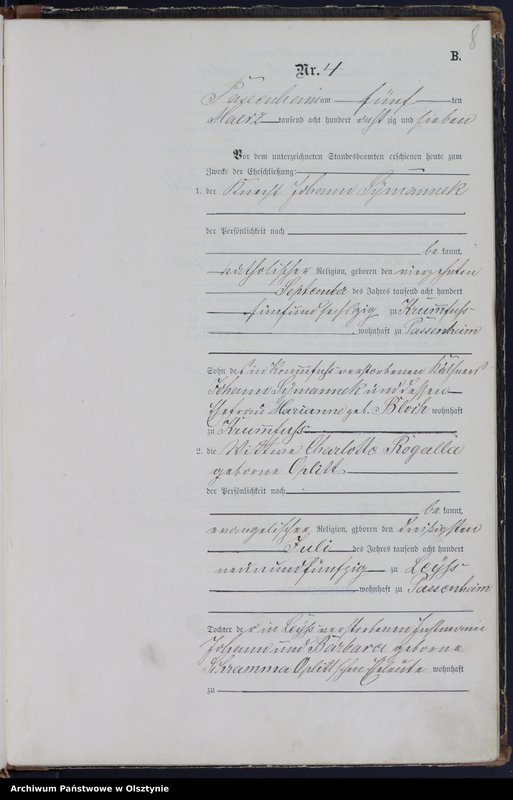 8
B.
Nr. 4
Passenheim am fünf ten
Maerz tausend acht hundert acht zig und sieben
Vor dem unterzeichneten Standesbeamten erschienen heute zum
Zwecke der Eheschließung:
1. der Knecht Johann Symannek
der Persönlichkeit nach
be kannt,
katholischer Religion, geboren den vierzehnten
September des Jahres tausend acht hundert
fünfundsechszig zu Krummfuss
, wohnhaft zu Passenheim
Sohn des in Krummfuss verstorbenen Käthners
Johann Symannek und dessen
Ehefrau Marianne geb. wohnhaft
zu Krummfuss
2. die Wittwe Charlotte Rogalla
geborne Oplitt
der Persönlichkeit nach
be kannt,
evangelischer Religion, geboren den dreißigsten
Juli des Jahres tausend acht hundert
neunundfünfzig zu Leyss
, wohnhaft zu Passenheim
Tochter der in Leyss verstorbenen
Johann und Barbara geborne
Oplitt'schen Eheleute wohnhaft
zu
Archiwum Państwowe w Olsztynie